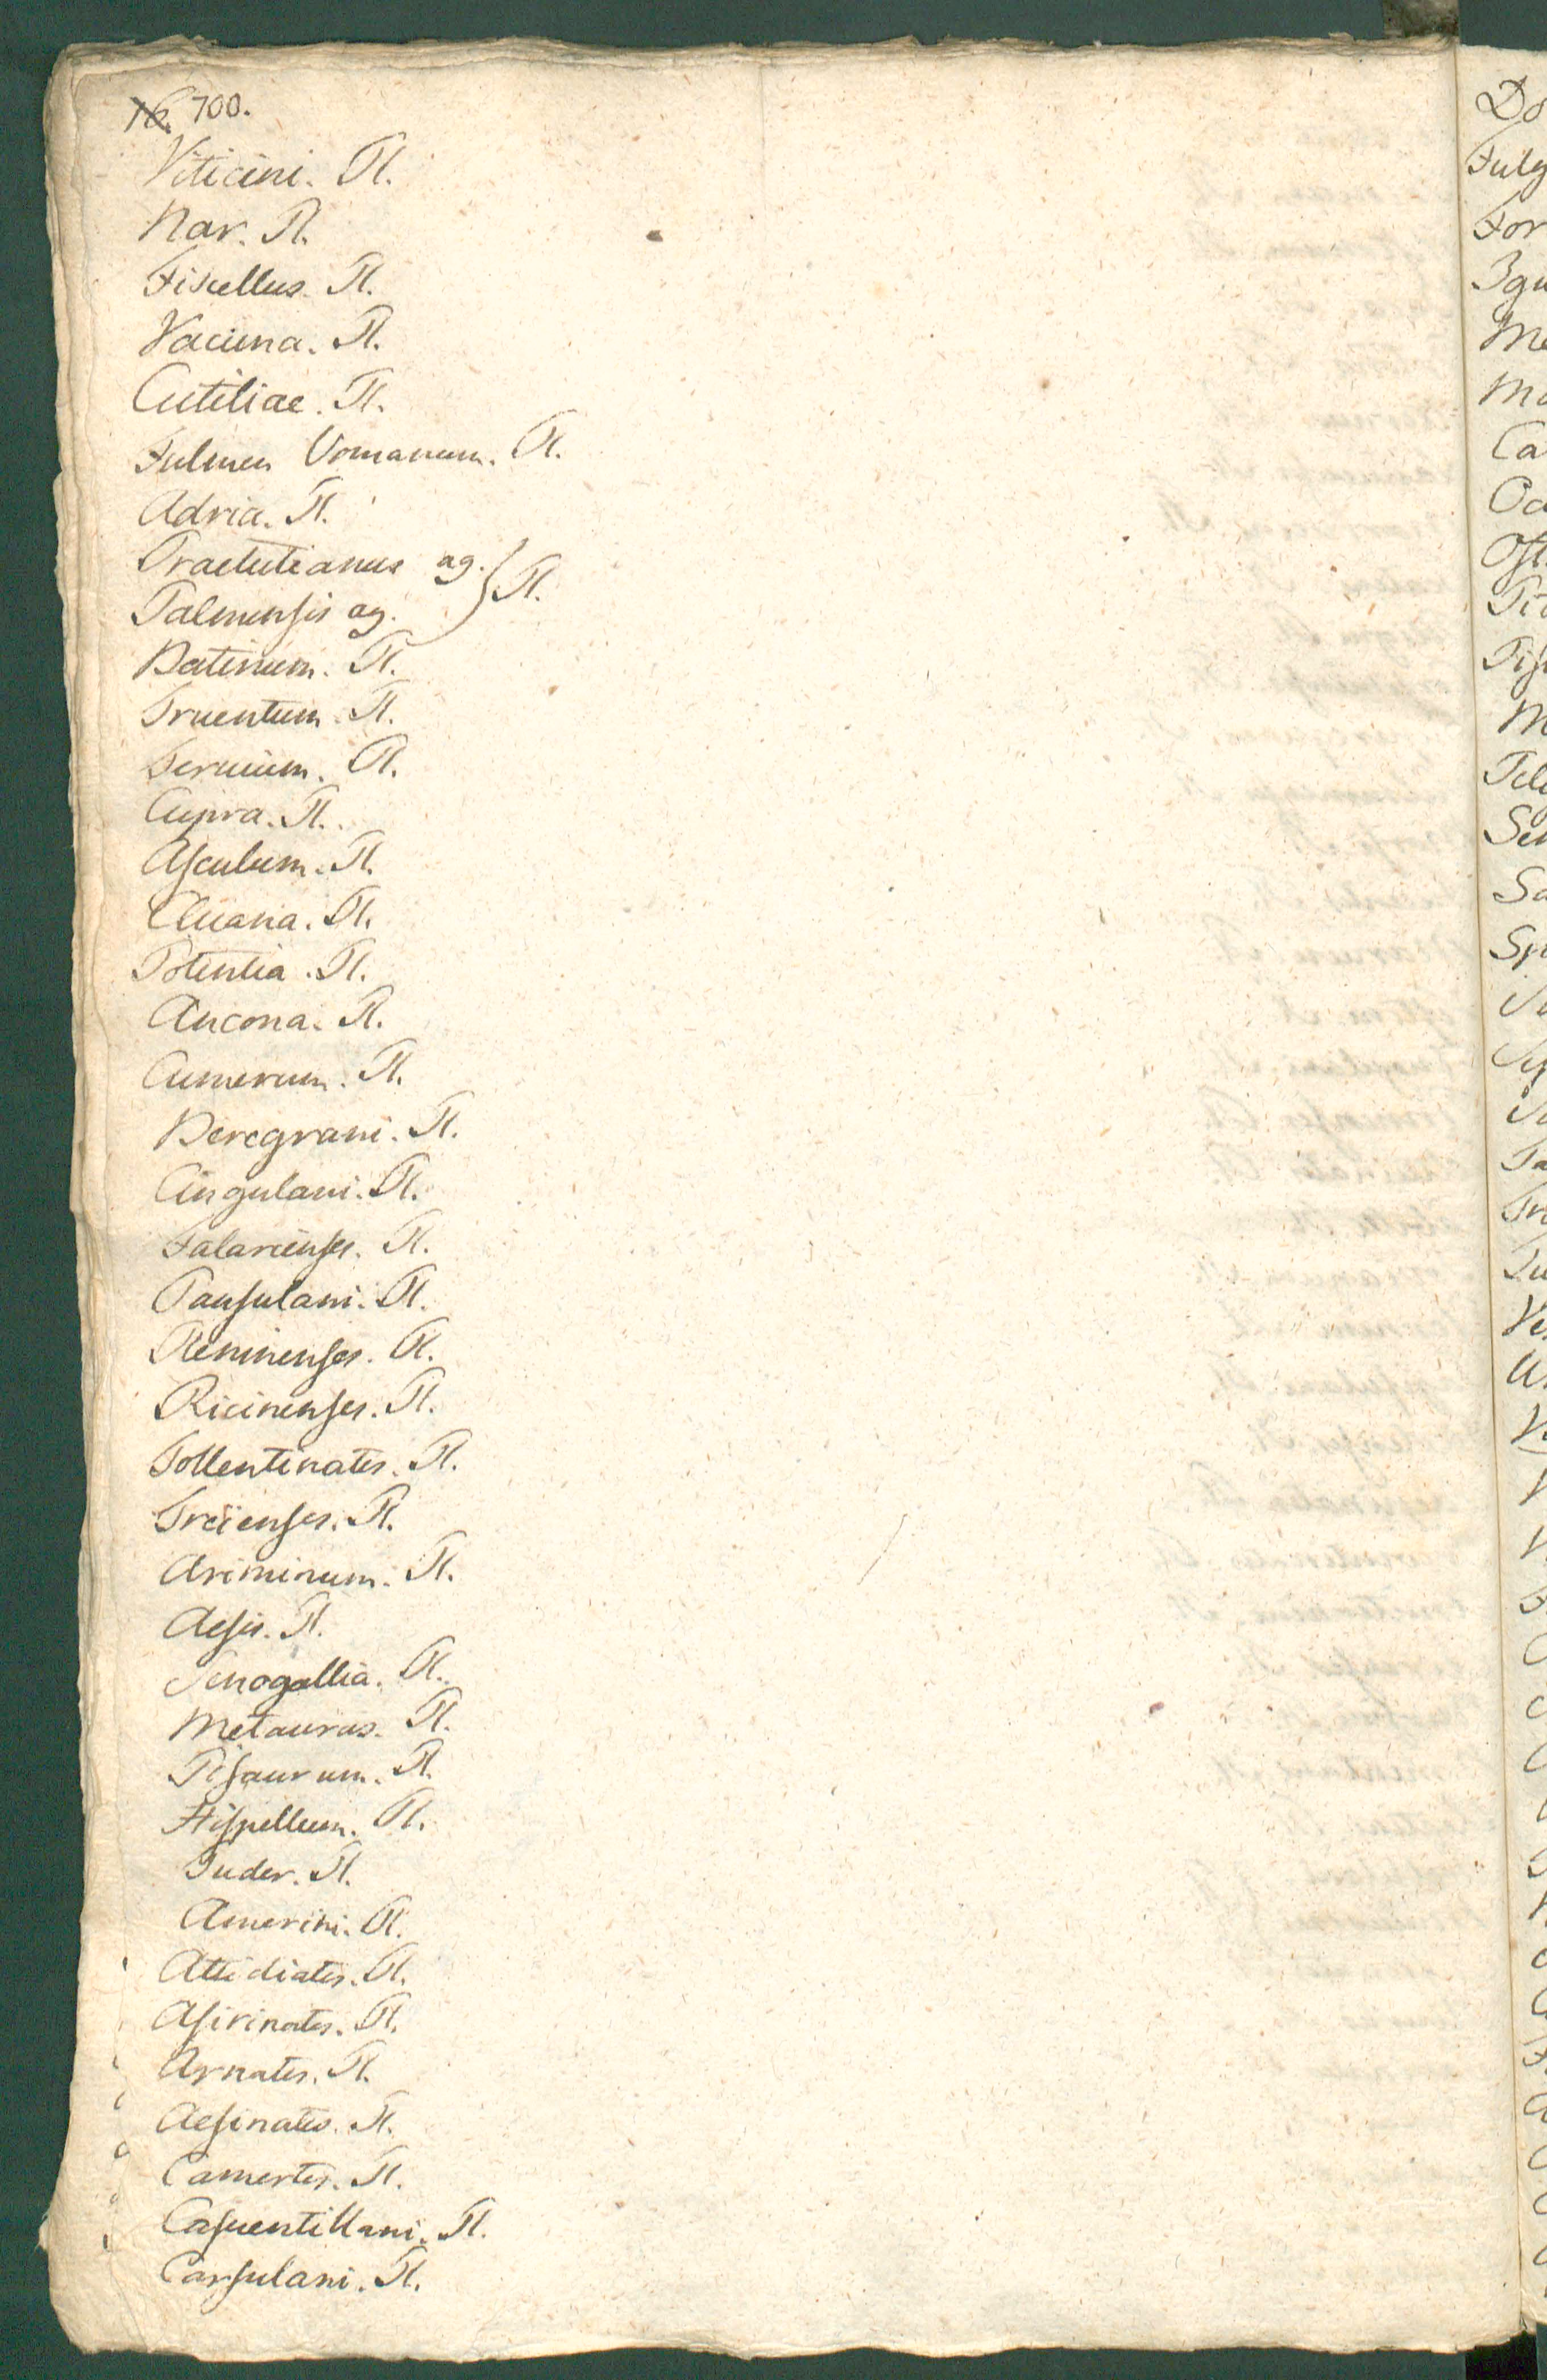 16. 700.
Viticini. Pl.
Nar. Pl.
Fiscellus. Pl.
Vacuna. Pl.
Cutiliae. Pl.
Fulmen Vomanum. Pl.
Adria. Pl.
Praetutianus ag. } Pl.
Palmensis ag.
Batinum. Pl.
Truentum. Pl.
Cupra. Pl.
Asculum. Pl.
Cluana. Pl.
Potentia. Pl.
Ancona. Pl.
Cumerum. Pl.
Beregrani. Pl.
Cingulani. Pl.
Falarienses. Pl.
Pausulani. Pl.
Pleninenses. Pl.
Ricinenses. Pl.
Tollentinates. Pl.
Treienses. Pl.
Ariminum. Pl.
Aesis. Pl.
Senogallia. Pl.
Metaurus. Pl.
Pisaurum. Pl.
Hispellum. Pl.
Tuder. Pl.
Amerini. Pl.
Attidiates. Pl.
Asirinates. Pl.
Arnates. Pl.
Aesinates. Pl.
Camertes. Pl.
Casuentillani. Pl.
Carsulani. Pl.